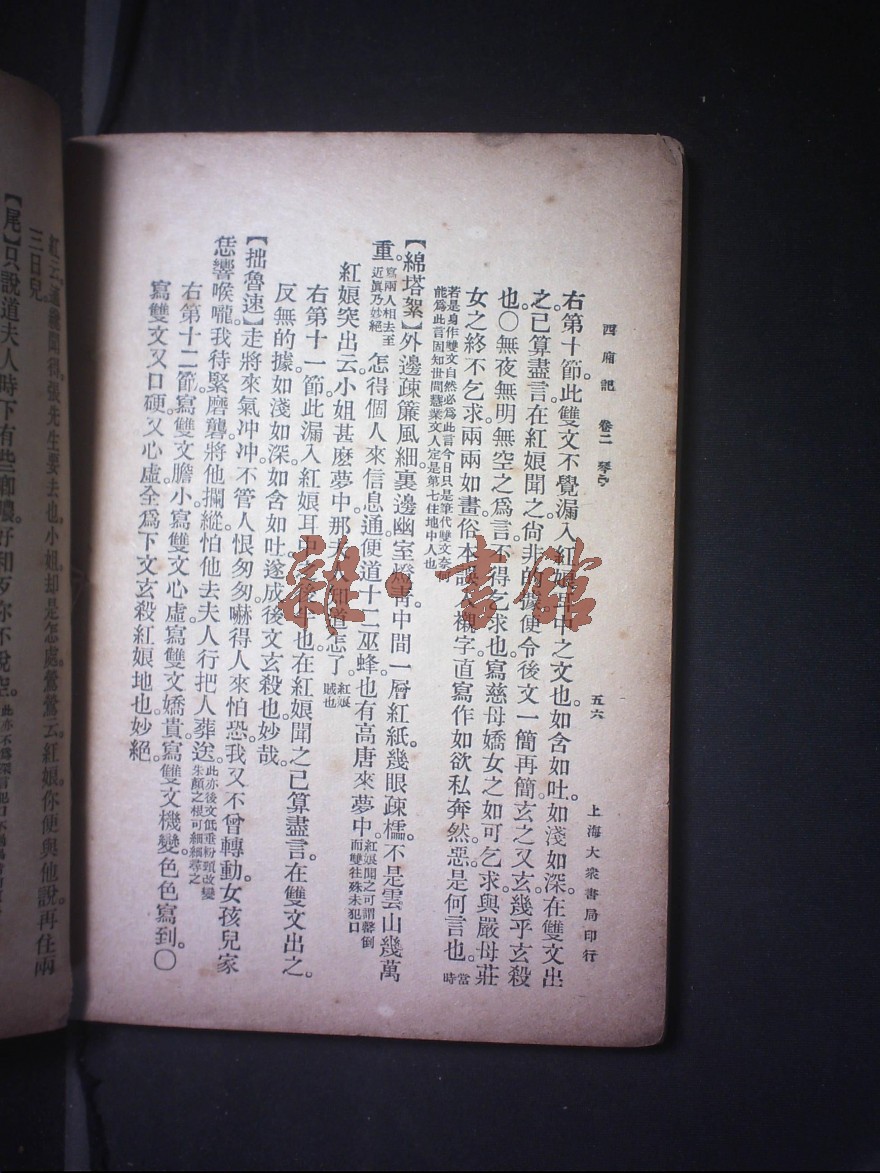 西廂記 卷二 琴心 五六 上海大衆書局印行
右第十節。此雙文不覺漏入紅娘耳中之文也。如含如吐。如淺如深。在雙文出
之。已算盡言。在紅娘聞之。尙非的據。便令後文一簡再簡。玄之又玄。幾乎玄殺
也。〇無夜無明無空之爲言。不得乞求也。寫慈母嬌女之如可乞求。與嚴母莊
女之終不乞求。兩兩如畫。俗本誤入襯字。直寫作如欲私奔然。惡是何言也。當時
若是身作雙文自然必爲此言今日只是筆代雙文奈何
能爲此言固知世間慧業文人定是第七住地中人也
【綿塔絮】外邊疎簾風細。裏邊幽室燈靑。中間一層紅紙。幾眼疎櫺。不是雲山幾萬
重。寫兩人相去至近眞乃妙絕 怎得個人來信息通。便道十二巫峰。也有高唐來夢中。紅娘聞之可謂罄倒而雙 殊未犯口
紅娘突出云。小姐甚麽夢中。那夫人知道怎了。紅娘賊也
右第十一節。此漏入紅娘耳中 也。在紅娘聞之。已算盡言。在雙文出之。
反無的據。如淺如深。如含如吐。遂成後文玄殺也。妙哉。
【拙魯速】走將來氣冲冲。不管人恨匆匆。嚇得人來怕恐。我又不曾轉動。女孩兒家
恁響喉嚨。我待緊磨礱。將他攔縱。怕他去夫人行把人葬送。此亦後文低垂粉頸改變朱顏之根可細細尋之
右第十二節。寫雙文膽小。寫雙文心虛。寫雙文嬌貴。寫雙文機變。色色寫到。〇
寫雙文又口硬。又心虛。全爲下文玄殺紅娘地也。妙絕。
紅云。 張先生要去也。小姐却是怎處。鶯鶯云。紅娘。你便與他說。再住兩
三日兒。
【尾】只說道夫人時下有些唧噥。好和歹你不脫空。